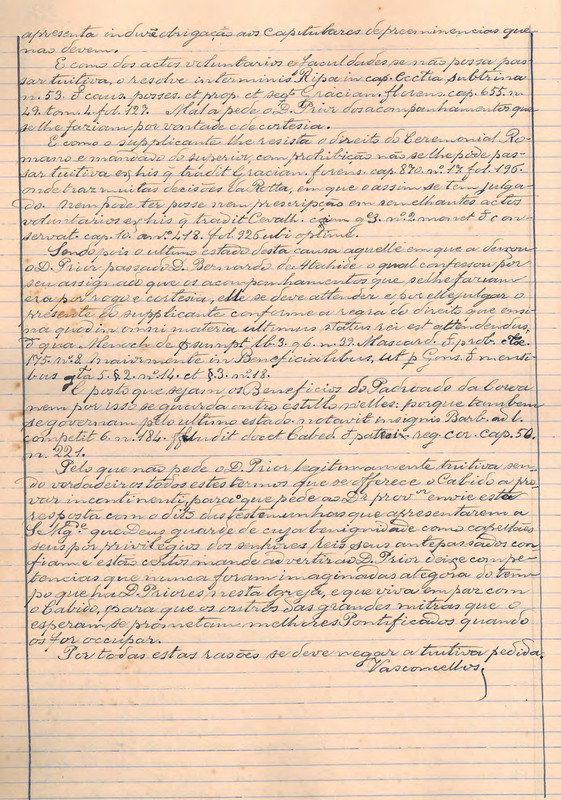 apresenta induzẽ obrigação aos Capitulares de preeminencias que
não devem.
E como dos actos voluntarios e faculdades se não possa pas-
sar tuitiva, o resolve interminis Ripa in cap.
n. 53. de caus. posses. et prop. et seqt. Gracian. florens. cap. 655. n.
29. tom. 4. fol. 127. Mal a pede o D. Prior dos acompanhamentos que
se lhe fariam por vontade e de cortesia.
E como o supplicante lhe resista o direito do Ceremonial Ro-
mano e mandado do superior, com prohibição não se lhe pode pas-
sar tuitiva ex his q̃ tradit Gracian. forens. cap. 870. n.º 17. fol. 196.
onde traz muitas decisões da Rotta, em que o assim se tem julga-
do. Nem pode ter posse nem prescripção em semelhantes actos
voluntarios ex his q̃ tradit Cevall. com q 3. n.º 2 monet de con-
servat. cap. 10. a n.º 418. fol. 326 ubi optimé.
Sendo pois o ultimo estado desta causa aquelle em que a deixou
o D. Prior passado D. Bernardo de Athaide o qual confessou por
seu assignado que os acompanhamentos que se lhe fariam
era por rogo e cortesia, elle se deve attender e por elle julgar o
presente do supplicante conforme a regra do direito que ensi-
na quod in omni materia ultimus status rei est attendendus,
de qua Menoch de præsumpt. lib. 3. q 6. n. 33. Mascard. de prob.
175. n.º 8. maiormente in Beneficialibus, ut p. Gons. de mensi-
bus gta 5. § 2. n.º 14. et § 3. n.º 18.
E posto que sejam os Beneficios do Padroado da Coroa
nem por isso se guarda outro estillo nelles: porque tambem
se governam pelo ultimo estado. notavit insignis Barb. ad l.
competit 6. n.º 184. ff docet Cabed. de patron. reg. cor. cap. 56.
n.º 221.
Pelo que não pede o D. Prior legitimamente tuitiva, sen-
do verdadeiros todos estes termos que se offerece o Cabido a pro-
var incontinenti, para o que pede ao Dr. prov.or envie esta
resposta com o dito das testemunhas que apresentarem a
S. Mg.e que Deus guarde de cuja benignidade como capellães
seus por privilegios dos senhores Reis seus antepassados con-
fiam e estão certos mande advertir ao D. Prior deixe compe-
tencias que nunca foram imaginadas atégora do tem-
po que ha D. Priores nesta Igreja, e que viva em paz com
o Cabido, para que os outros das grandes mitras que o
esperam se prometam melhores Pontificados quando
os for occupar.
Por todas estas rasões se deve negar a tuitiva pedida.
Vasconcellos.